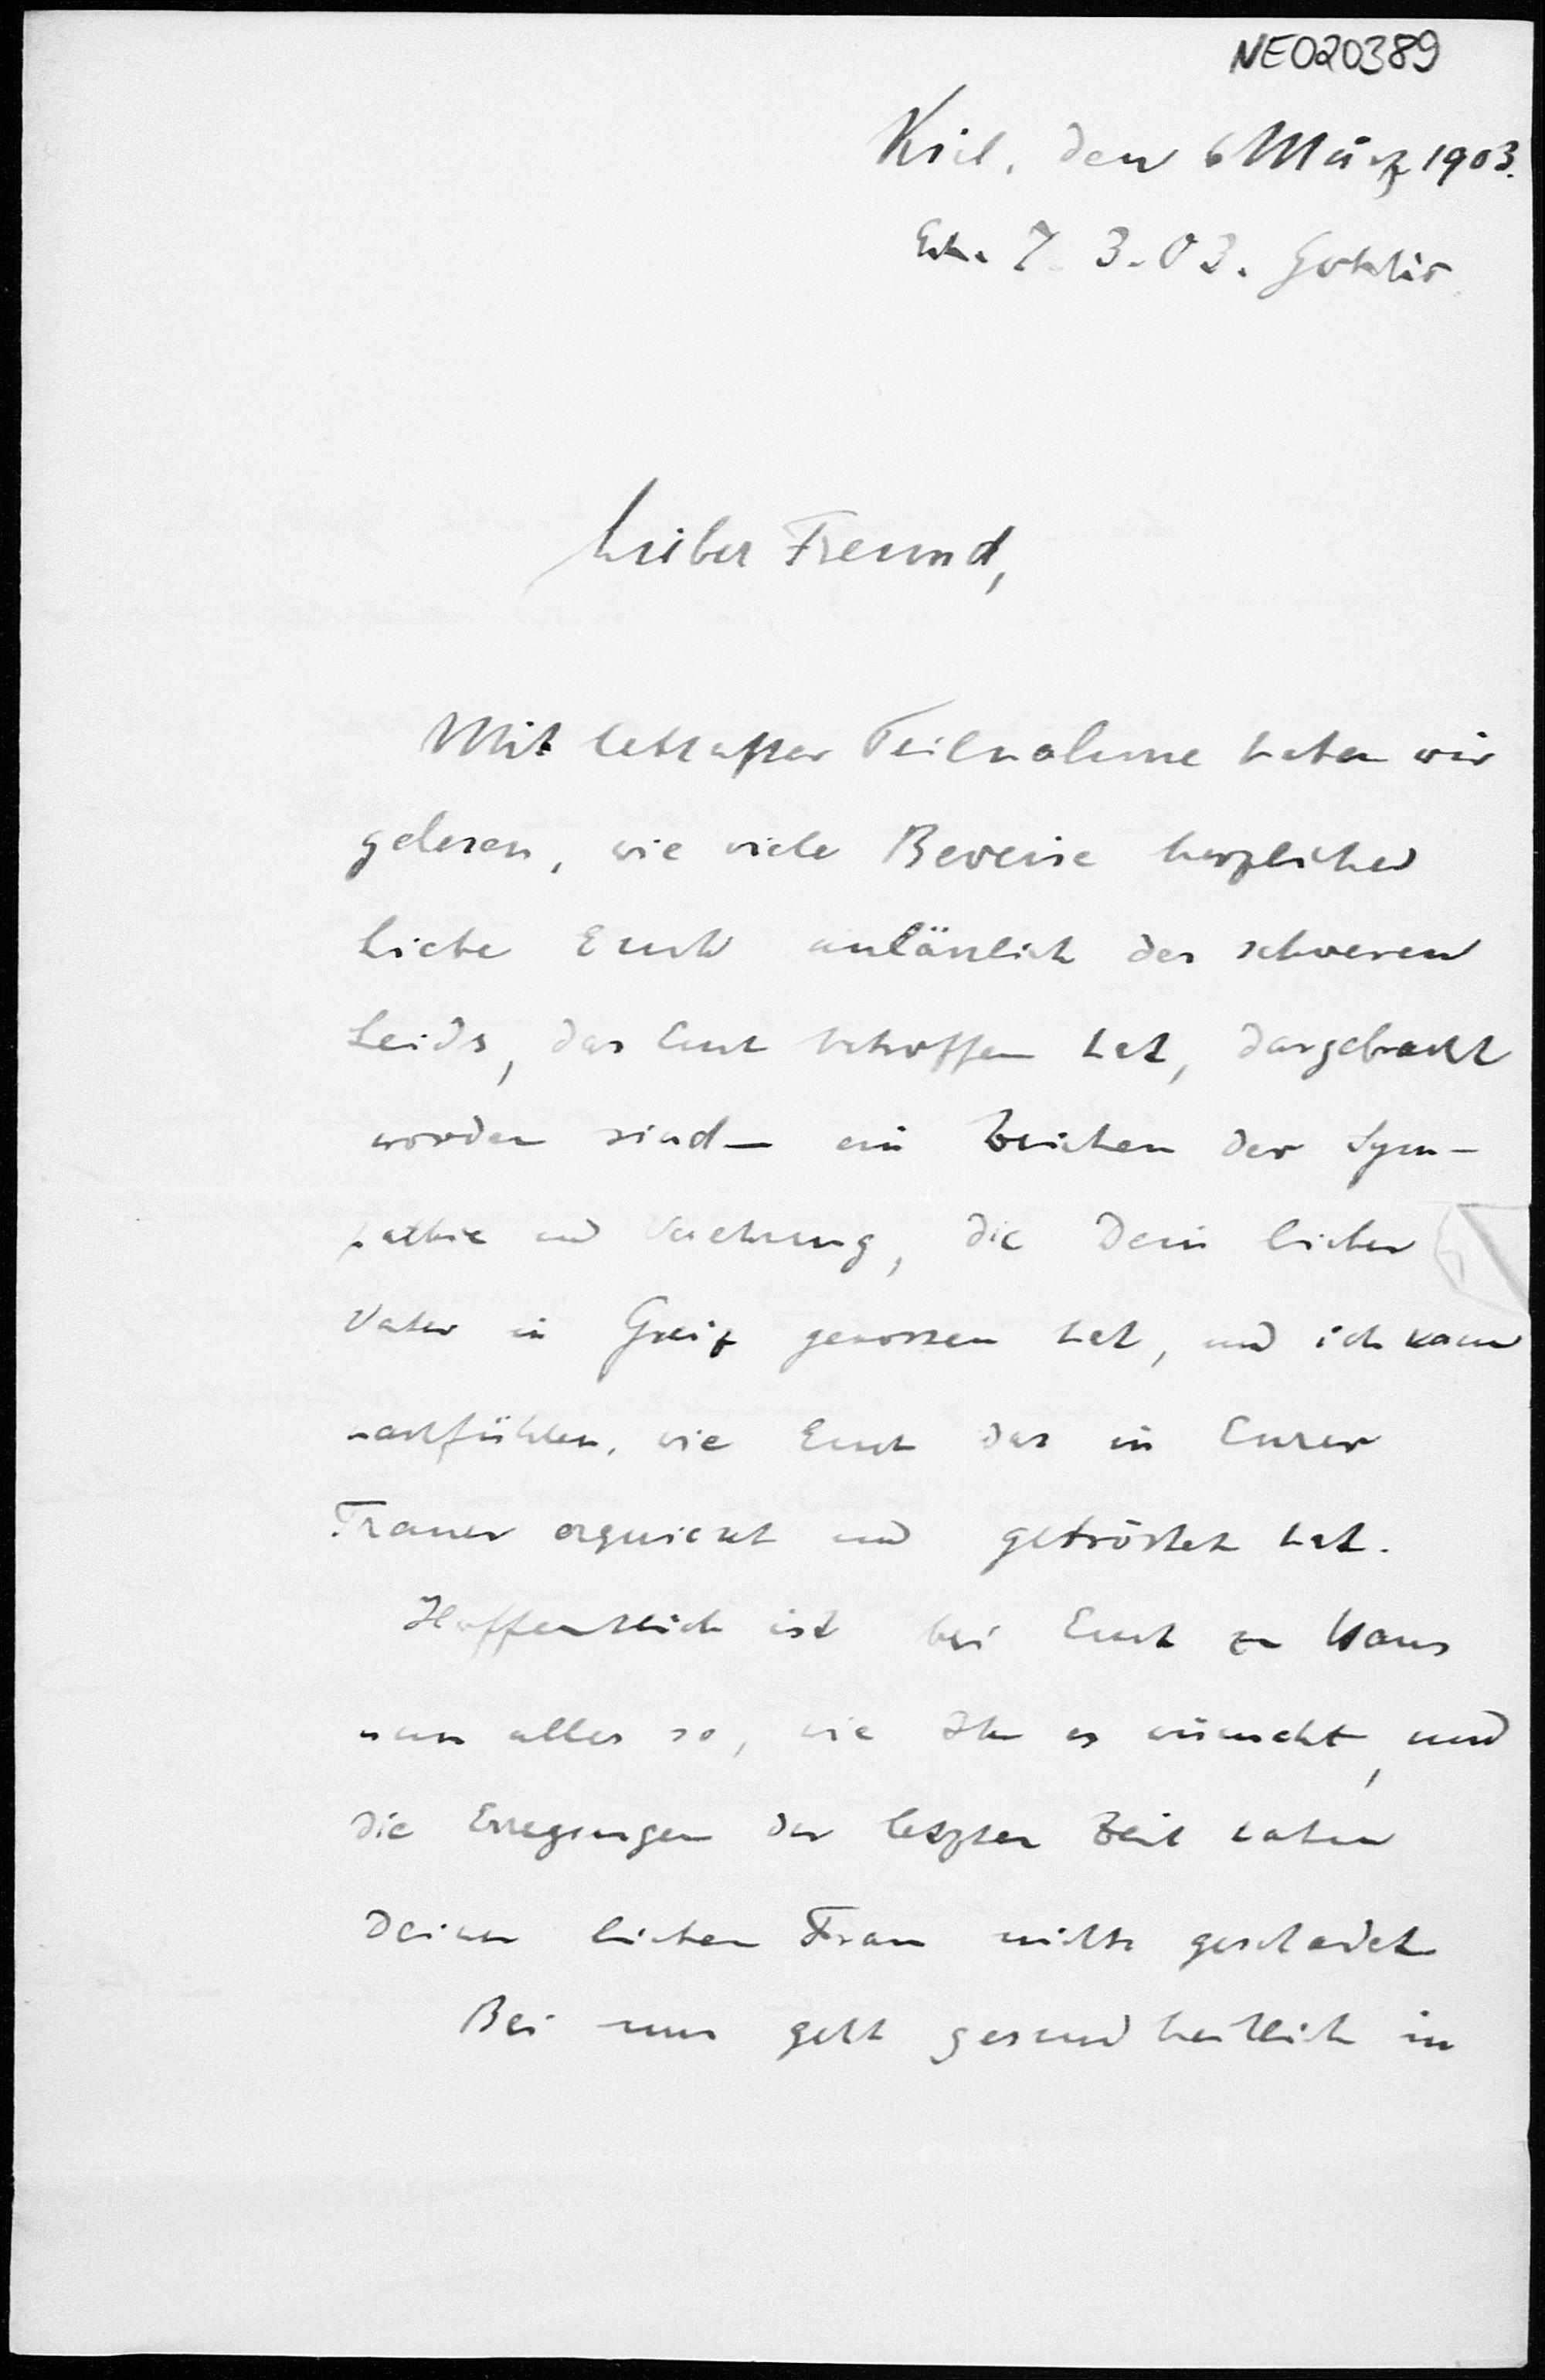 NE020389
Kiel, den 6 März 1903.
Erh. 7. 3. 03. Gohlis.
Lieber Freund,
Mit lebhafter Teilnahme haben wir
gelesen, wie viele Beweise herzlicher
Liebe Euch anlässlich des schweren
Leids, das Euch betroffen hat, dargebracht
worden sind – ein Zeichen der Sym-
pathie und Verehrung, die Dein lieber
Vater in Greiz genossen hat, und ich kann
nachfühlen, wie Euch das in Eurer
Trauer erquickt und getröstet hat.
Hoffentlich ist bei Euch zu Haus
nun alles so, wie Ihr es wünscht, und
die Erregungen der letzten Zeit haben
Deiner lieben Frau nichts geschadet
Bei uns geht gesundheitlich in